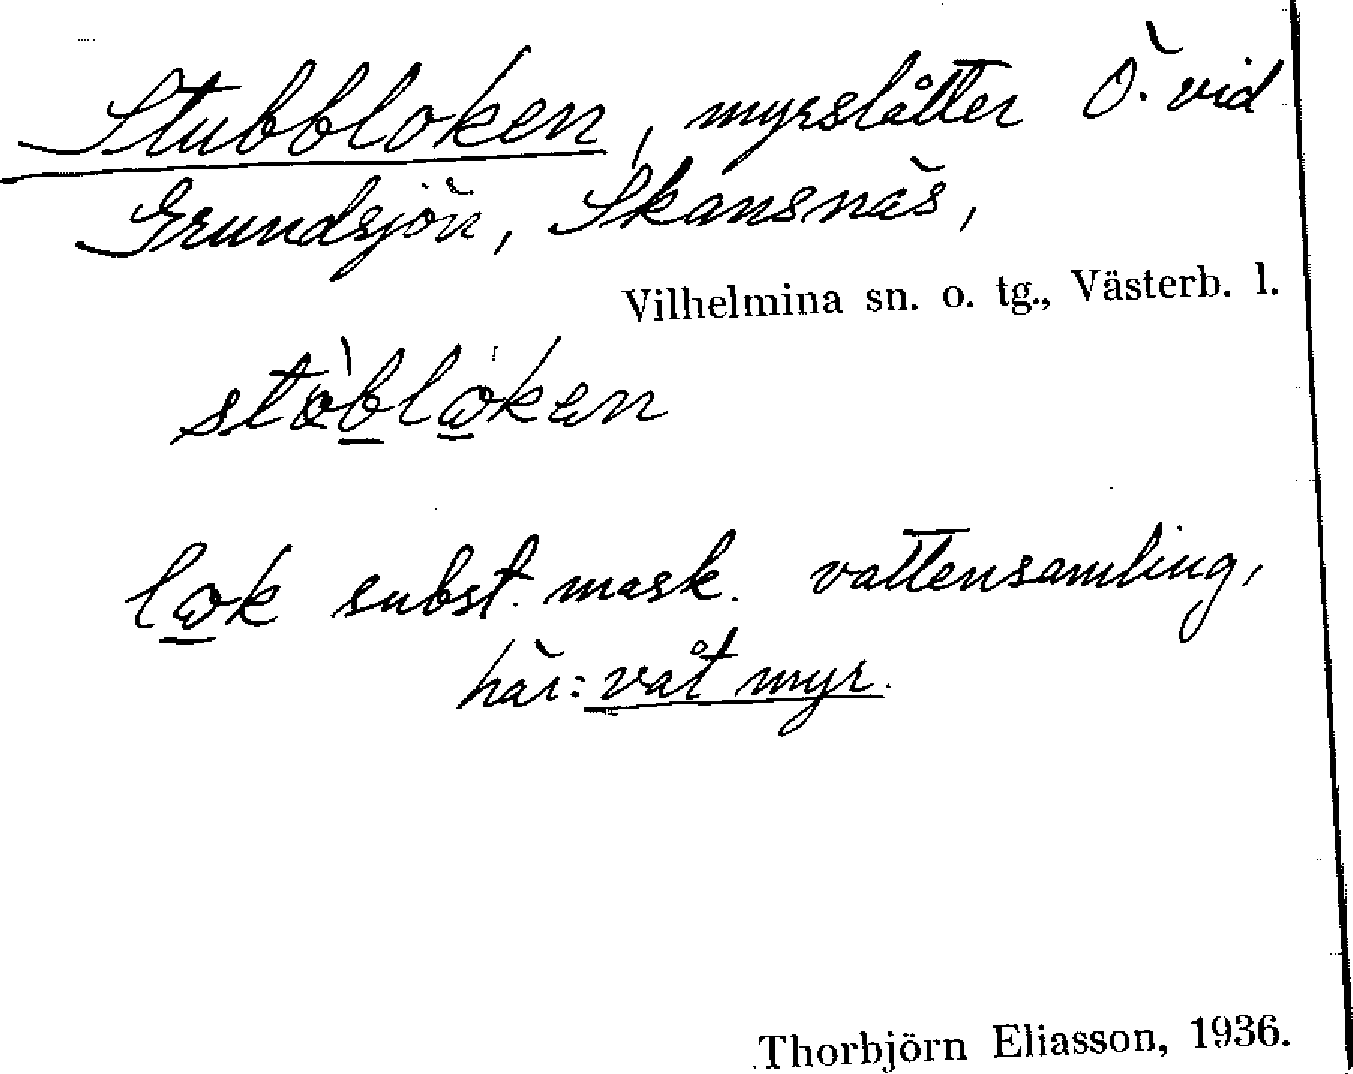 Stubbloken, myrslåtter Ö. vid
Grundsjön, Skansnäs,
Vilhelmina sn. o. tg., Västerb. l.
subst. mask. vattensamling,
här: våt myr.
Thorbjörn Eliasson, 1936.